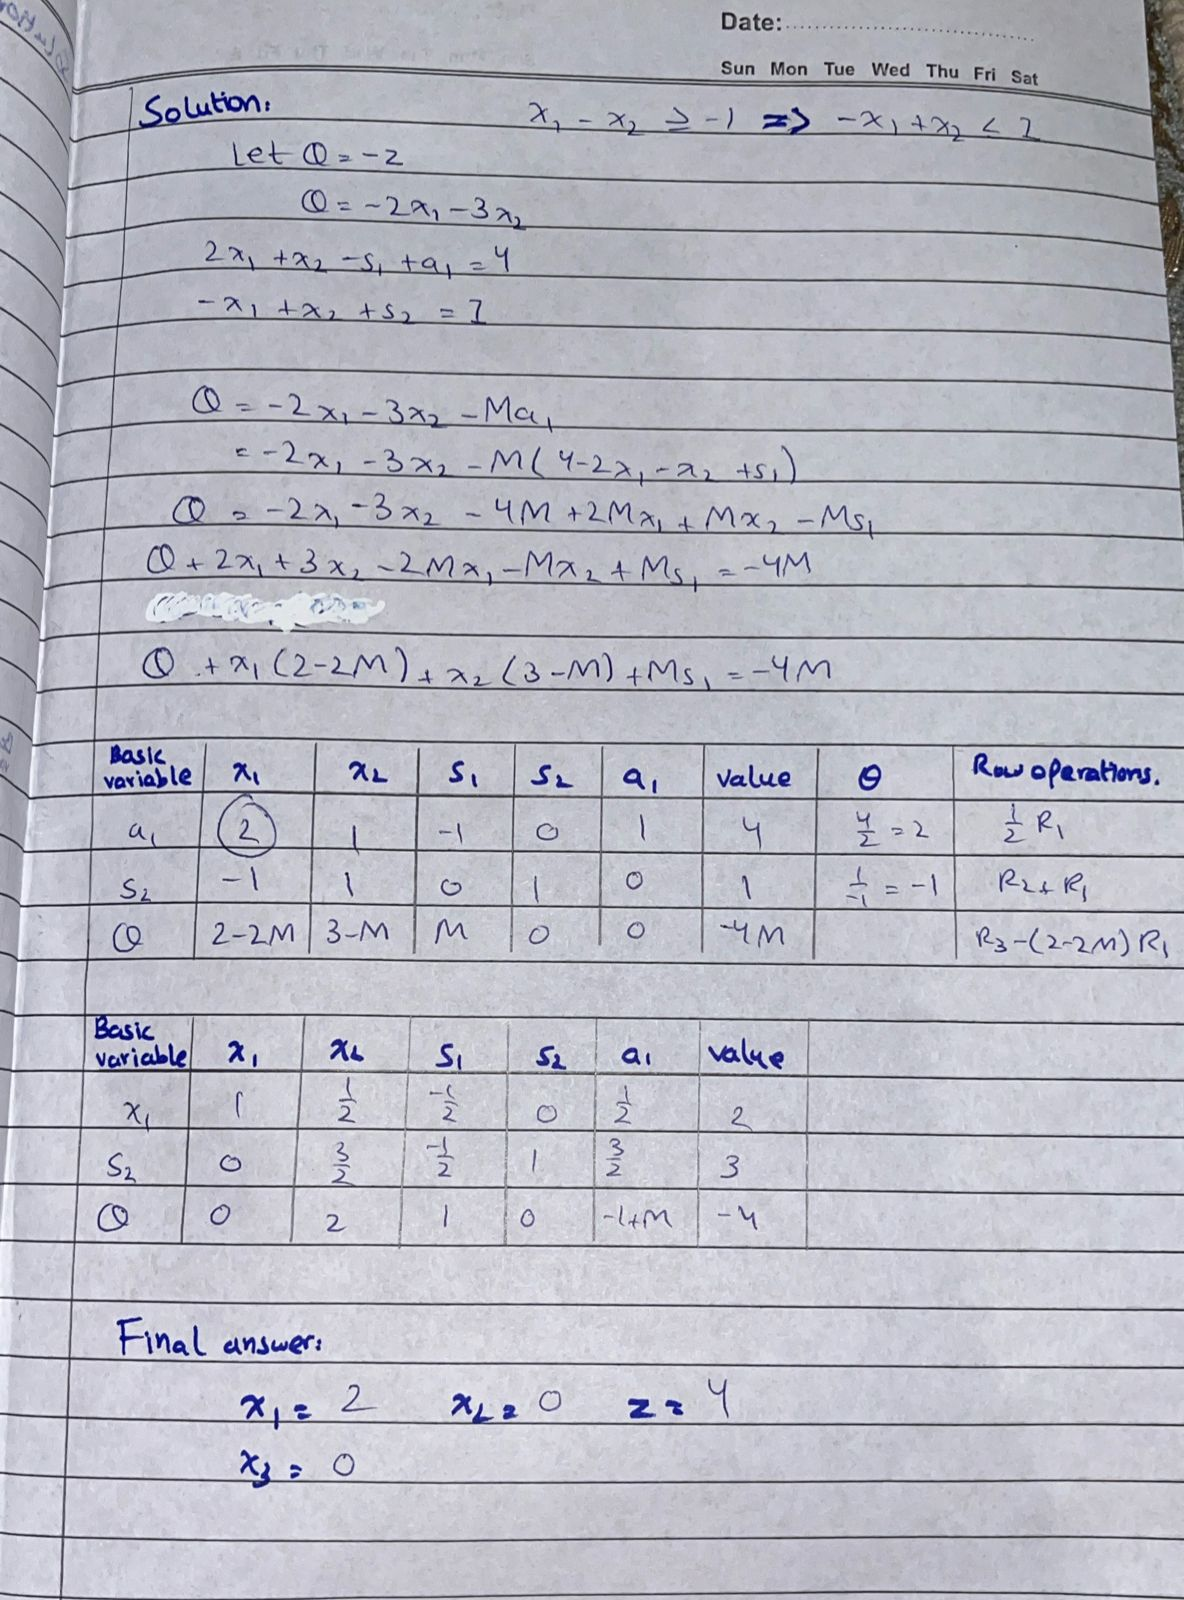 Date:
Sun Mon Tue Wed Thu Fri Sat
Solution: x₁ - x₂ ≥ -1 => -x₁ + x₂ < 1
Let Q = -z
Q = -2x₁ - 3x₂
2x₁ + x₂ - s₁ + a₁ = 4
-x₁ + x₂ + s₂ = 1
Q = -2x₁ - 3x₂ - Ma₁
= -2x₁ - 3x₂ - M(4 - 2x₁ - x₂ + s₁)
Q = -2x₁ - 3x₂ - 4M + 2Mx₁ + Mx₂ - Ms₁
Q + 2x₁ + 3x₂ - 2Mx₁ - Mx₂ + Ms₁ = -4M
Q + x₁(2-2M) + x₂(3-M) + Ms₁ = -4M
Basic variable x₁ x₂ s₁ s₂ a₁ value θ Row operations.
a₁ 2 1 -1 0 1 4 4/2 = 2 1/2 R₁
s₂ -1 1 0 1 0 1 1/-1 = -1 R₂ + R₁
Q 2-2M 3-M M 0 0 -4M R₃-(2-2M)R₁
Basic variable x₁ x₂ s₁ s₂ a₁ value
x₁ 1 1/2 -1/2 0 1/2 2
s₂ 0 3/2 -1/2 1 3/2 3
Q 0 2 1 0 -1+M -4
Final answer:
x₁ = 2 x₂ = 0 z = 4
x₃ = 0